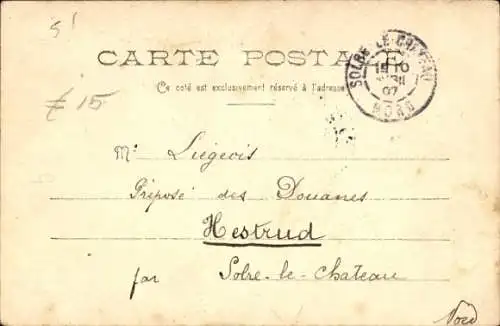 5!
CARTE POSTALE
Ce coté est exclusivement réservé à l'adresse
SOLRE LE CHATEAU
15 10
07
NORD
£ 15
Mr Liégeois
Préposé des Douanes
Hestrud
par Solre-le-Chateau
Nord